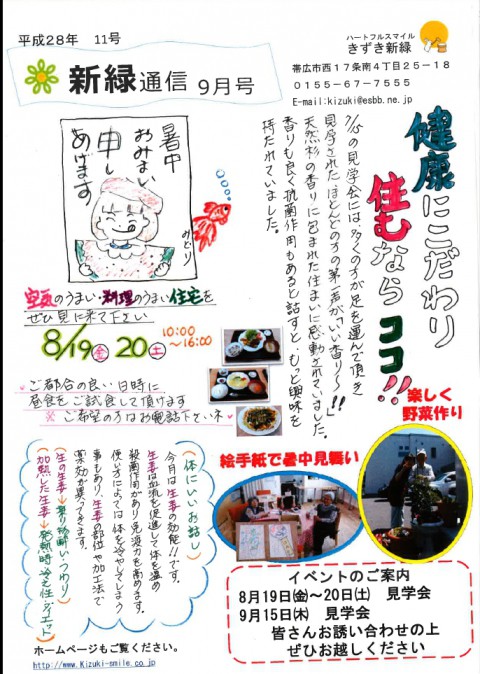 平成28年　11号
新緑通信 9月号
ハートフルスマイル
きずき新緑
帯広市西17条南4丁目25－18
0155－67－7555
E-mail:kizuki@esbb.ne.jp
健康にこだわり
住むなら ココ!!
7/15の見学会には、多くの方が足を運んで頂き
見学されたほとんどの方の第一声が「いい香り〜!!」
天然杉の香りに包まれた住まいに感動されていました。
香りも良く抗菌作用もあると話すと、もっと興味を
持たれていました。
暑中
おみまい
申し
あげます
みどり
空気のうまい・料理のうまい住宅を
ぜひ見に来て下さい
8/19(金) 20(土) 10:00
〜16:00
ご都合の良い日時に
昼食をご試食して頂けます
※ご希望の方はお電話下さいネ
楽しく
野菜作り
絵手紙で暑中見舞い
(体にいいお話し)
今月は生姜の効能!!です。
生姜は血流を促進して体を温め
殺菌作用があり免疫力を高めます。
使い方によっては体を冷やしてしまう
事もあり、生姜の部位や加工法で
薬効が異ってきます。
生の生姜→乗り物酔い・つわり
加熱した生姜→発熱時・冷え性・ダイエット
イベントのご案内
8月19日(金)～20日(土)　見学会
9月15日(木)　見学会
皆さんお誘い合わせの上
ぜひお越しください
ホームページもご覧ください。
http://www.Kizuki-smile.co.jp